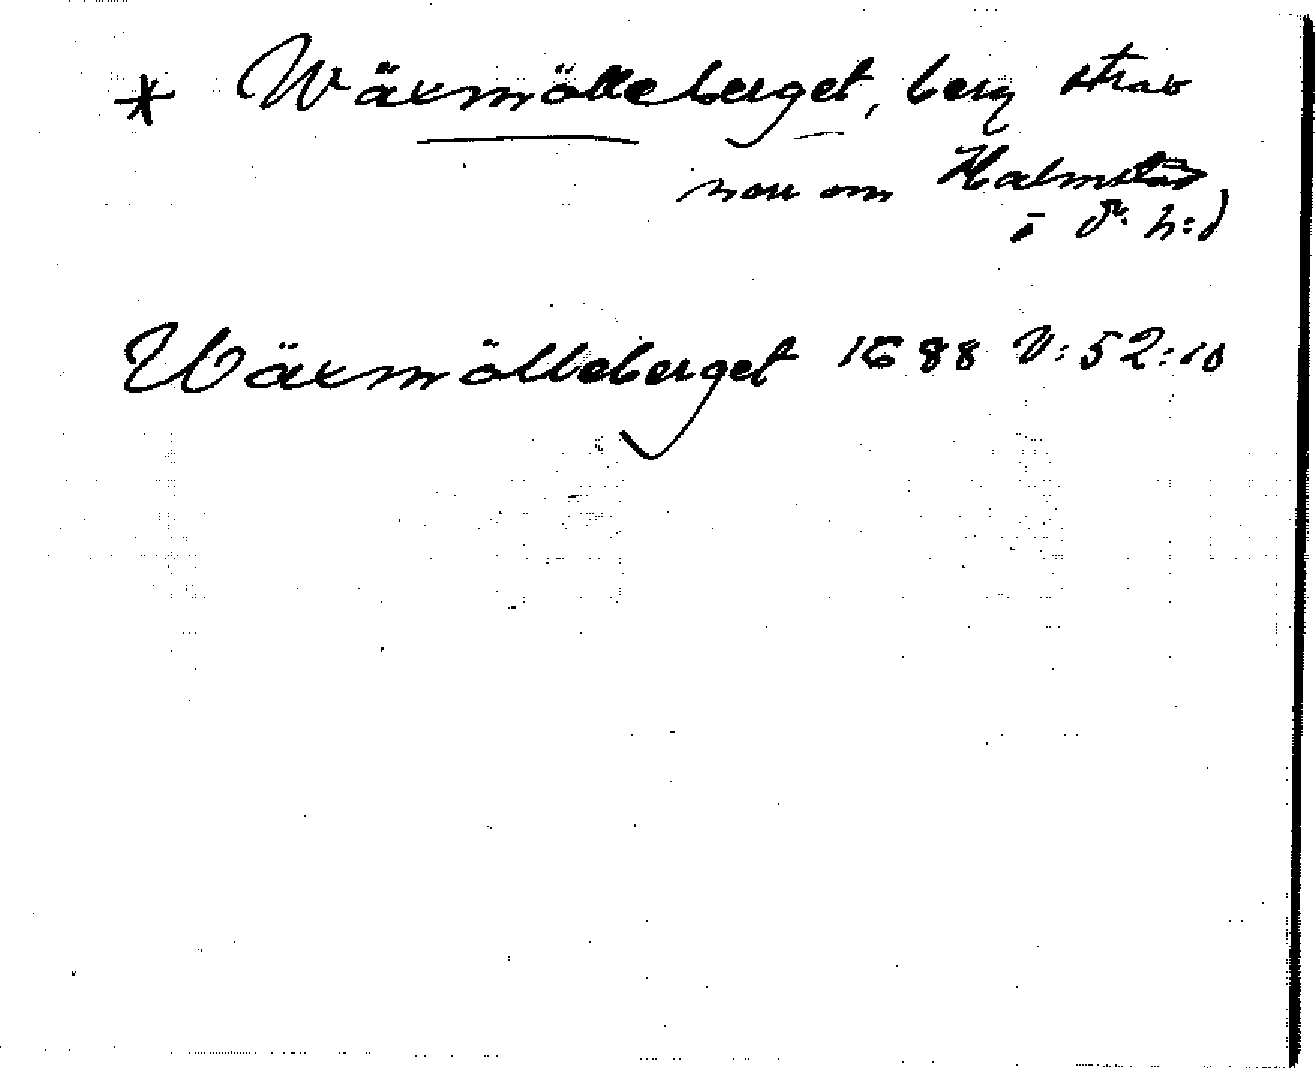 * Wäxmölleberget, berg strax
norr om Halmstad
i d:o h:d
Wäxmölleberget 1688 V:52:10